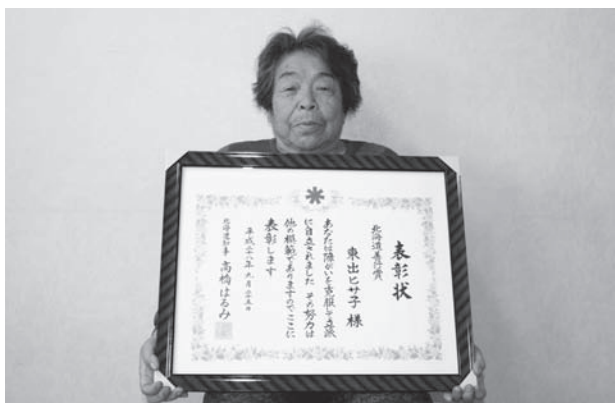 表彰状
北海道善行賞
東出ヒサ子 様
あなたは障がいを克服して立派
に自立されました その努力は
他の模範でありますのでここに
表彰します
平成二十八年 九月二十五日
北海道知事 高橋はるみ